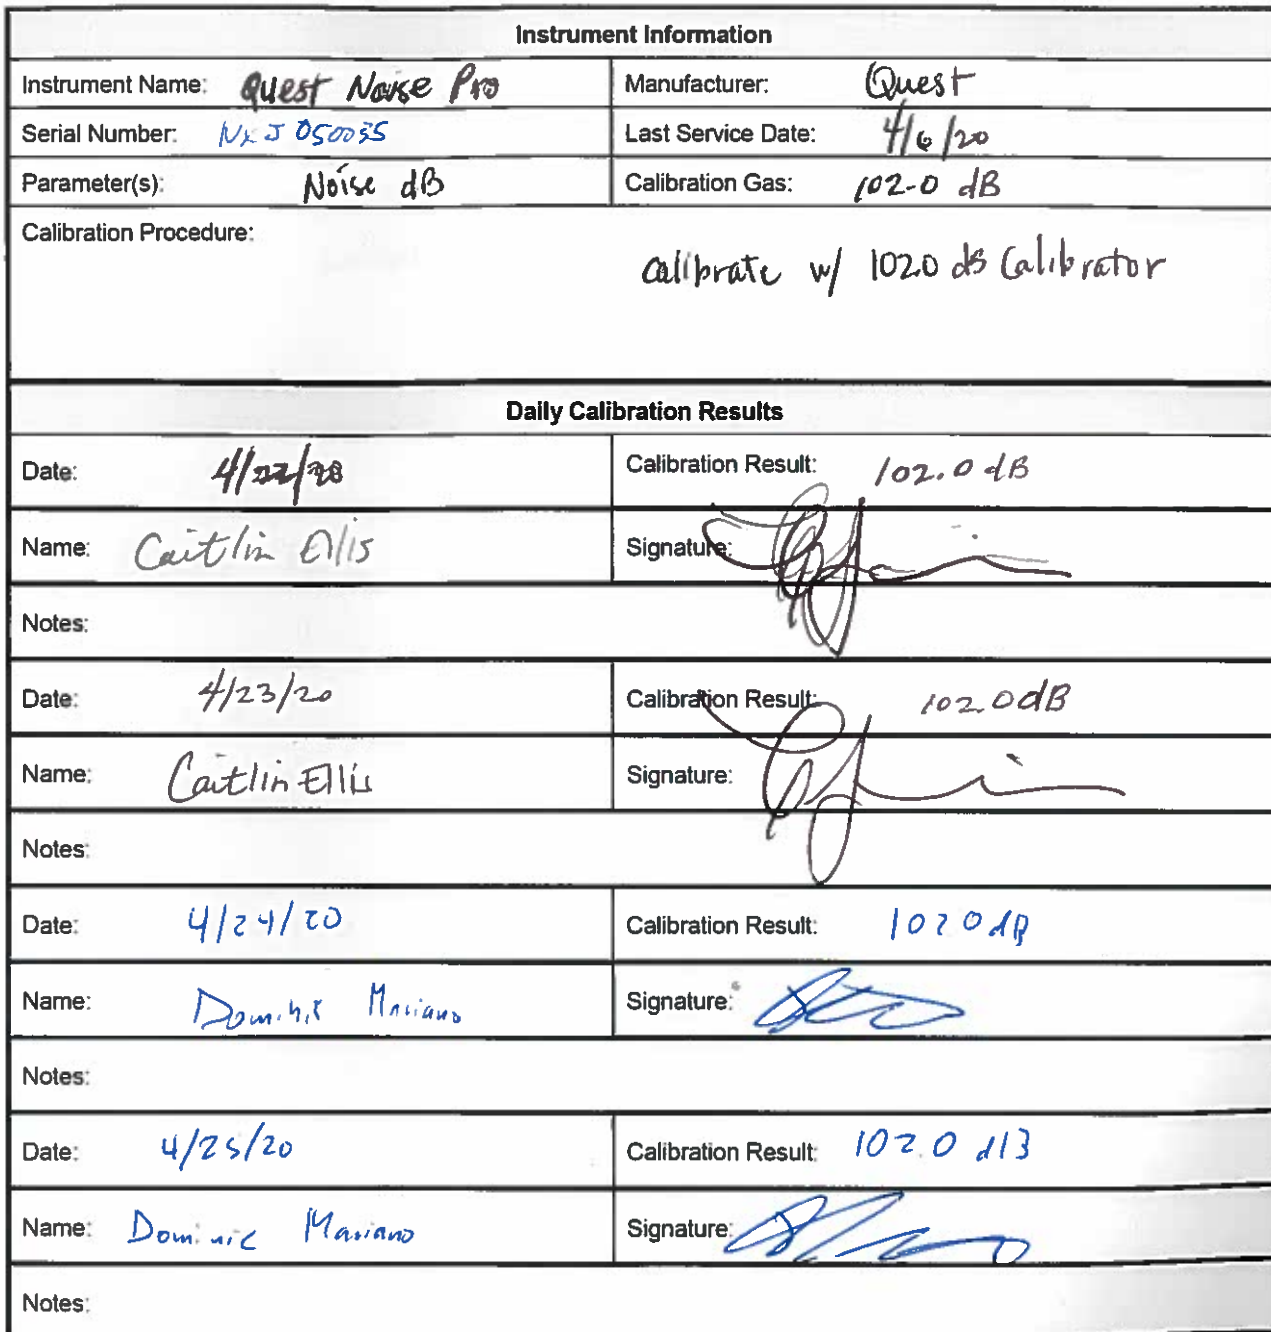 Instrument Information
Instrument Name: Quest Noise Pro
Manufacturer: Quest
Serial Number: NXJ050035
Last Service Date: 4/6/20
Parameter(s): Noise dB
Calibration Gas: 102.0 dB
Calibration Procedure:
calibrate w/ 102.0 dB Calibrator
Daily Calibration Results
Date: 4/22/20
Calibration Result: 102.0 dB
Name: Caitlin Ellis
Signature:
Notes:
Date: 4/23/20
Calibration Result: 102.0 dB
Name: Caitlin Ellis
Signature:
Notes:
Date: 4/24/20
Calibration Result: 102.0 dB
Name: Dominic Mariano
Signature:
Notes:
Date: 4/25/20
Calibration Result: 102.0 dB
Name: Dominic Mariano
Signature:
Notes: